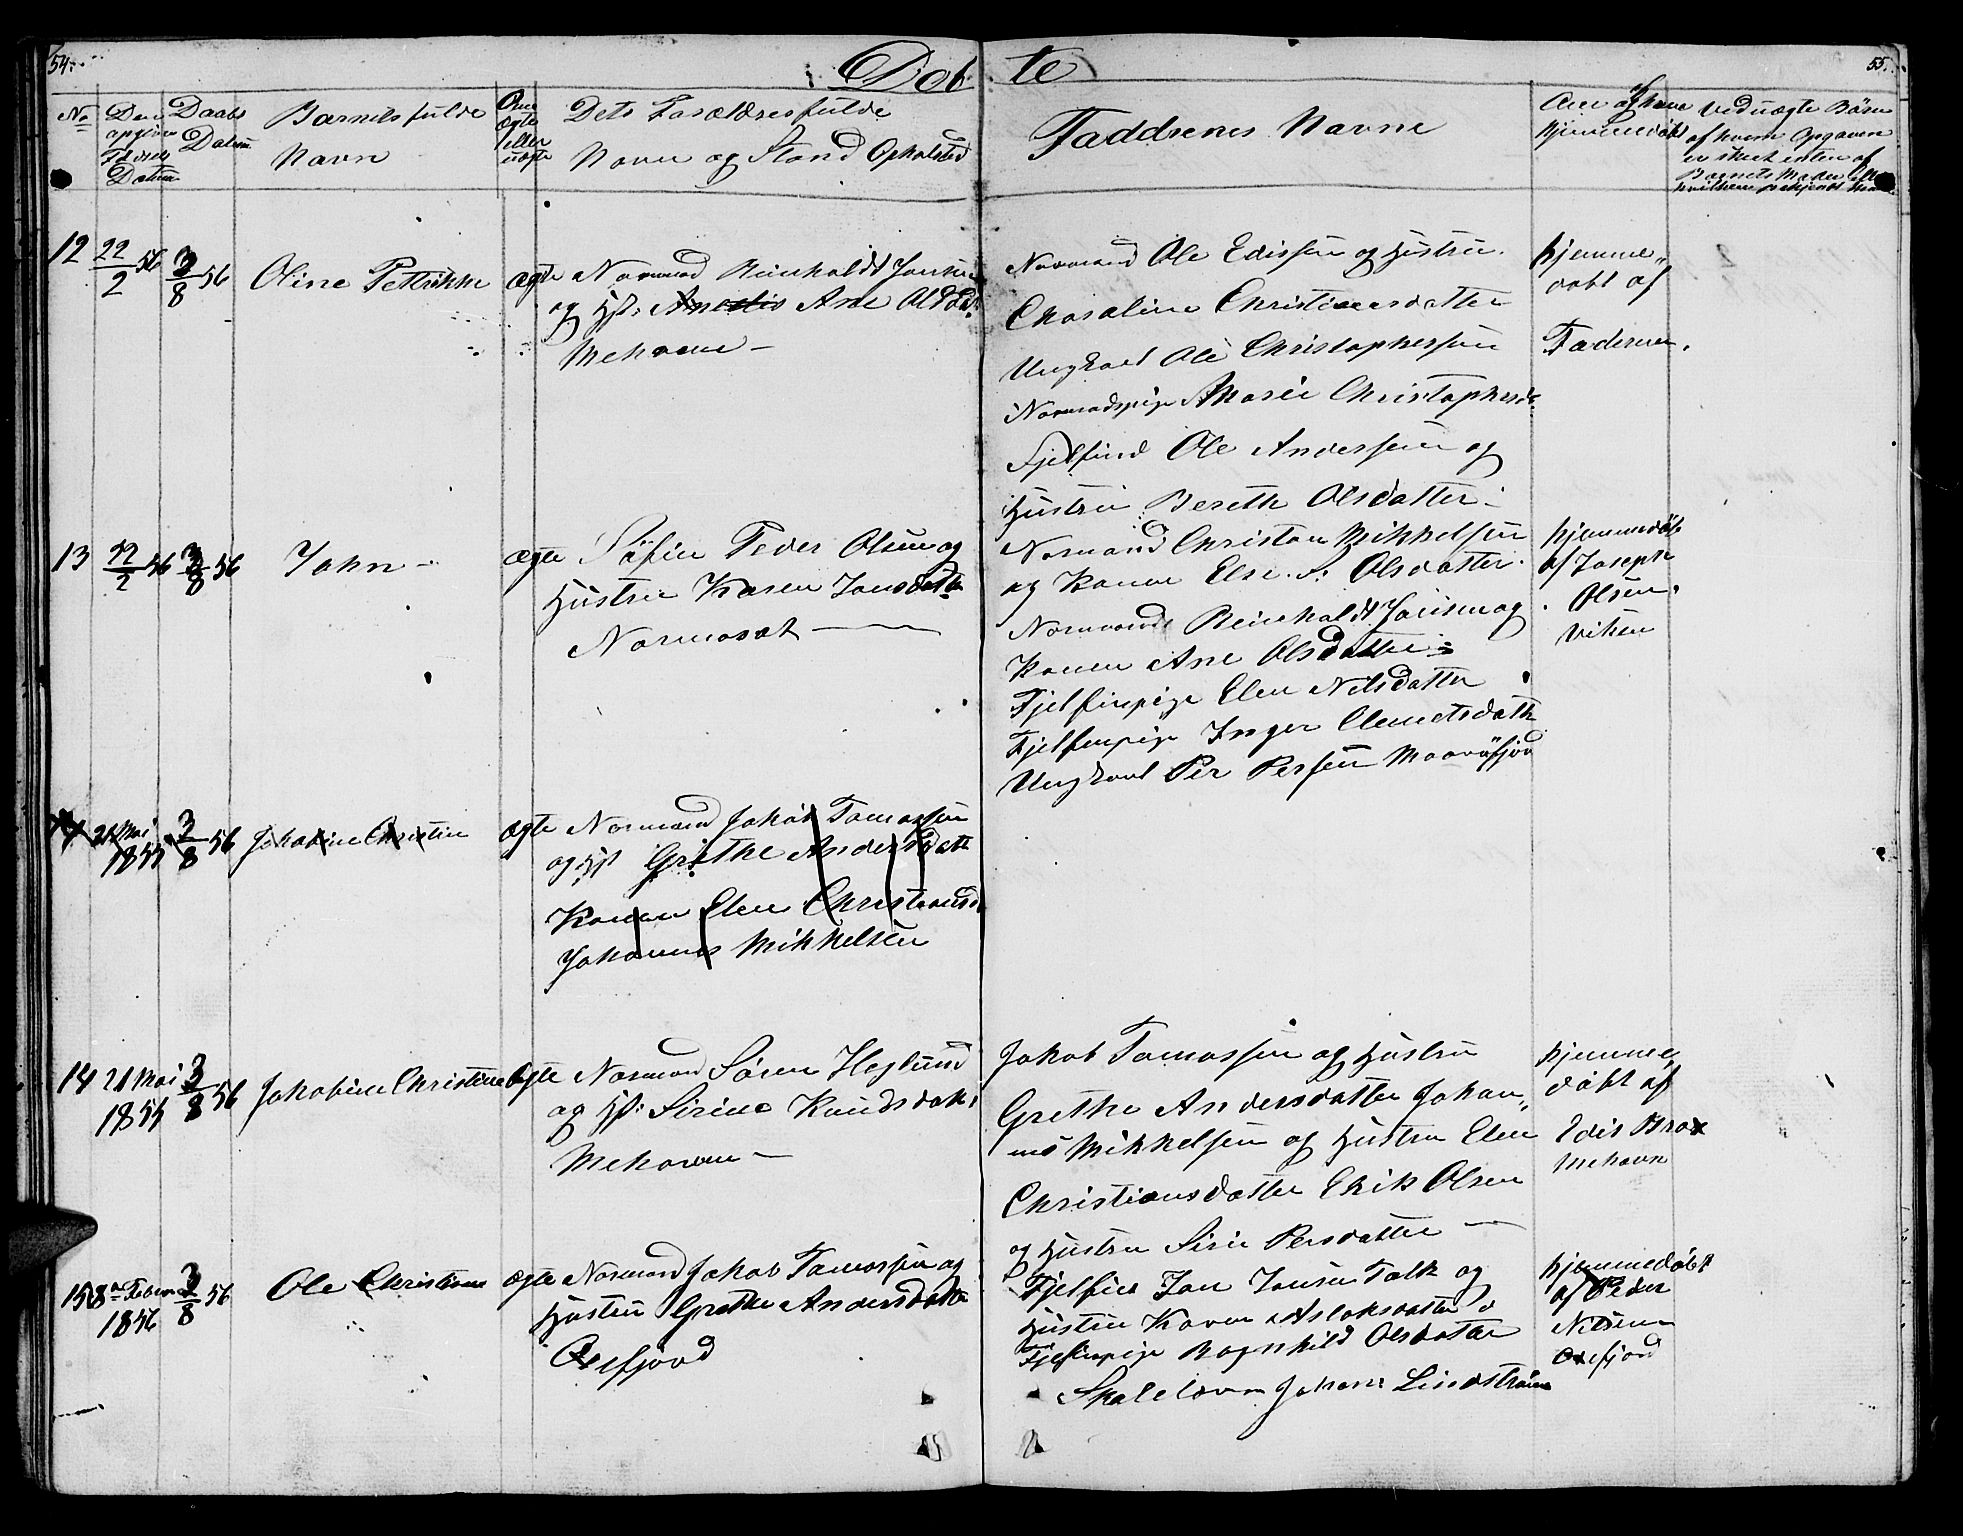 54.
Døb
te
55.
No
Den opgivne Fødsels Datum
Daabs Datum
Barnets fulde Navn
Om ægte eller uægte
Dets Forældres fulde
Navn og Stand Opholsted
Faddrenes Navne
hjemmedøbt
Ved uægte Børn
af hvem Opgaven
er skeet enten af
Barnets Moder
12
22/2 56
3/8 56
Oline Pettrikke
ægte
Normand Reinholdt Jonsen
og Hst: Ane Olsd
Mehavn –
Normand Ole Edissen og Hustru
Christiansdatter
Ungkarl Ole Christophersen
Normadspige Maria Christophersd.
Fjelfind Ole Anderssen og
Hustru Bereth Olsdatter
hjemme„
døbt af
Faderen.
13
22/2 56
3/8 56
John –
ægte
Søfin Peder Olsen og
Hustru Karen Jonsdatter
Normaset
Normand Christan Mikkelsen
og Konen Else. S: Olsdatter.
Normand Reinholdt Jonsen og
Konen Ane Olsdatter
Fjelfinpige Elen Nilsdatter
Fjelfinpige Inger Clemetsdatter
Ungkarl Per Persen
hjemmedøbt
af Joseph
Olsen.
Viken
14
21 Mai
1855
3/8 56
Jakobine Christine
ægte
Normand Jakob Tomassen
og Hst Grethe Andersdatt
Konen Elen Christiansd
Johannes Mikkelsen
14
21 Mai
1855
3/8 56
Jakobine Christine
ægte
Normand Sören Heglund
og Hst: Sirine Knudsdatt
Mehavn –
Jakob Tomassen og Hustru
Grethe Andersdatter Johan„
nes Mikkelsen og Hustru Elen
Christiansdatter Erik Olsen
og Hustru Siri Persdatter –
hjemme„
døbt af
Edis
Mehavn
15
8de Febru
1856
3/8 56
Ole Christian
ægte
Normand Jakob Tomassen og
Hustru Grethe Andersdatter
Oxefjord
Fjelfin Jon Jonsen Falk og
Hustru Karen Aslaksdatter
Fjelfinpige Ragnhild Olsdatter
Johan Lindstrøm
hjemmedøbt
af Peder
Nilsen
Oxefjord